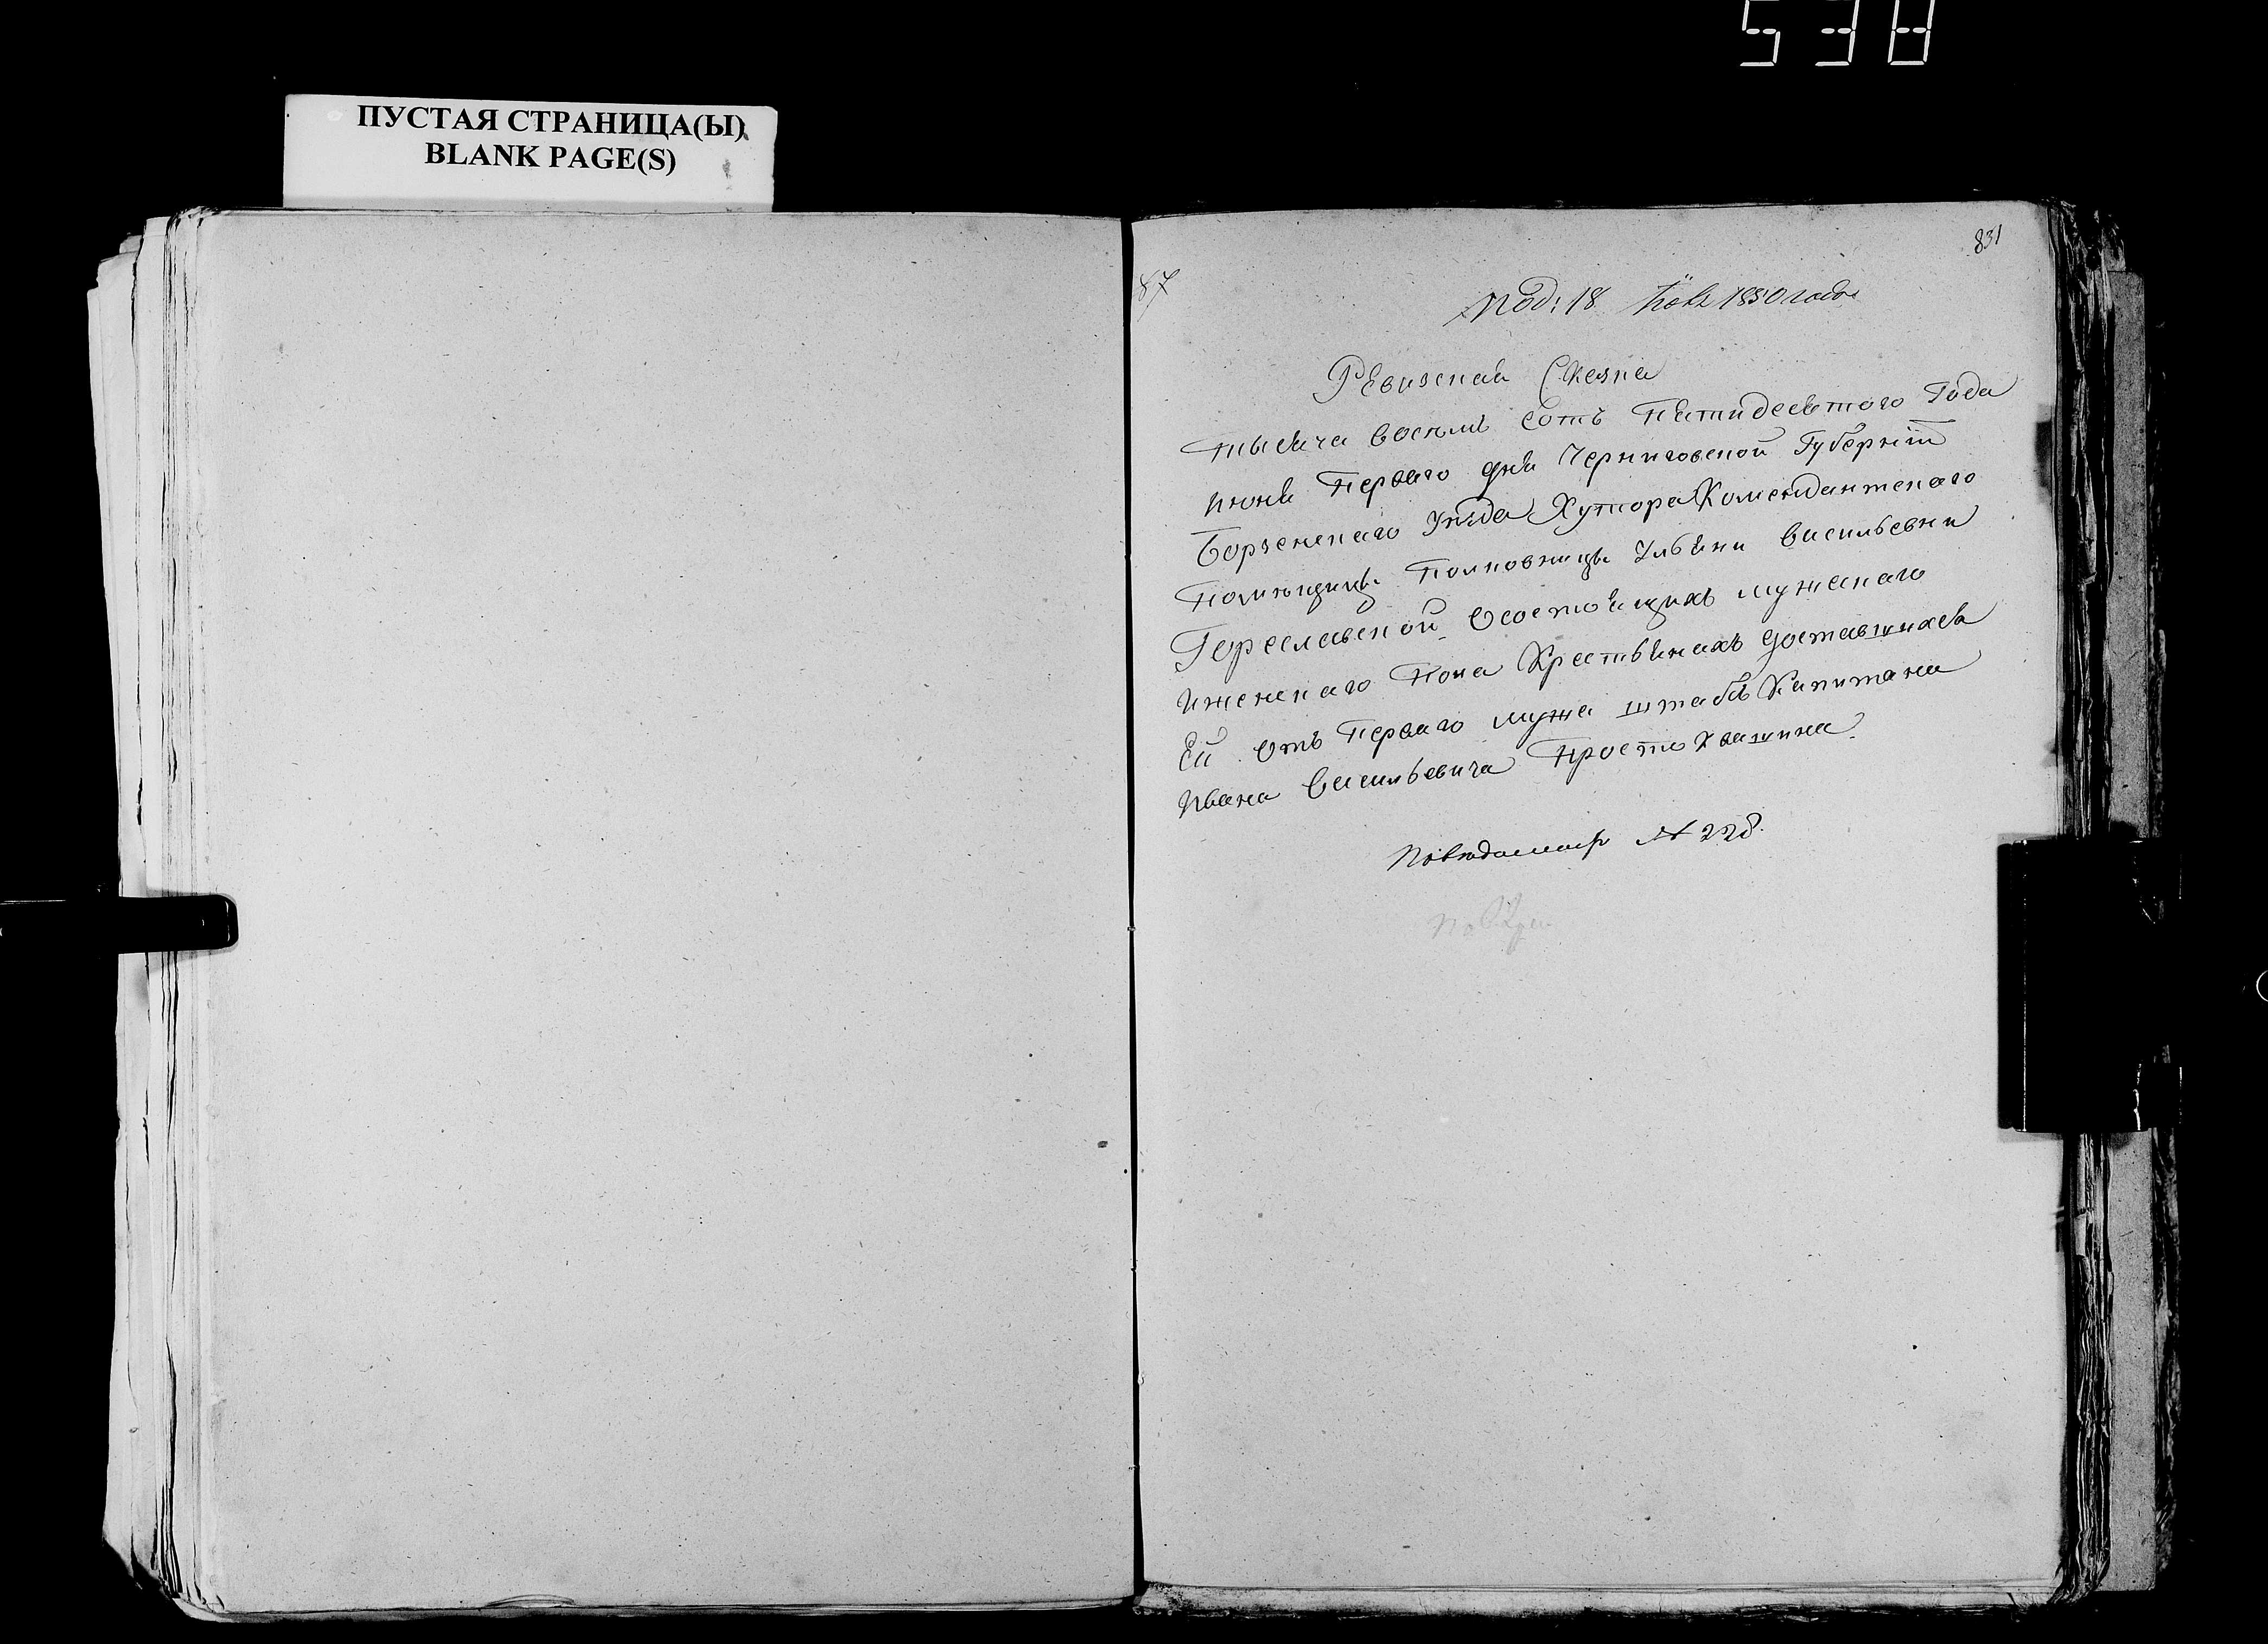 538
ПУСТАЯ СТРАНИЦА(Ы)
BLANK PAGE(S)
831
87
Под: 18 1850 года
Ревизская Сказка
тысяча восемь сотъ пятидесятого Года
июня перваго дня Черниговской Губерніи
Борзенскаго Уезда Хутора Комендантскаго
Помещицы Полковницы Ульяни Васильевни
Гореславской Осостоящихъ мужескаго
иженскаго Пола Крестьянахъ доставшихся
Ей отъ Перваго мужа штабъ Капитана
Ивана Васильевича Простоквашина
№ 228